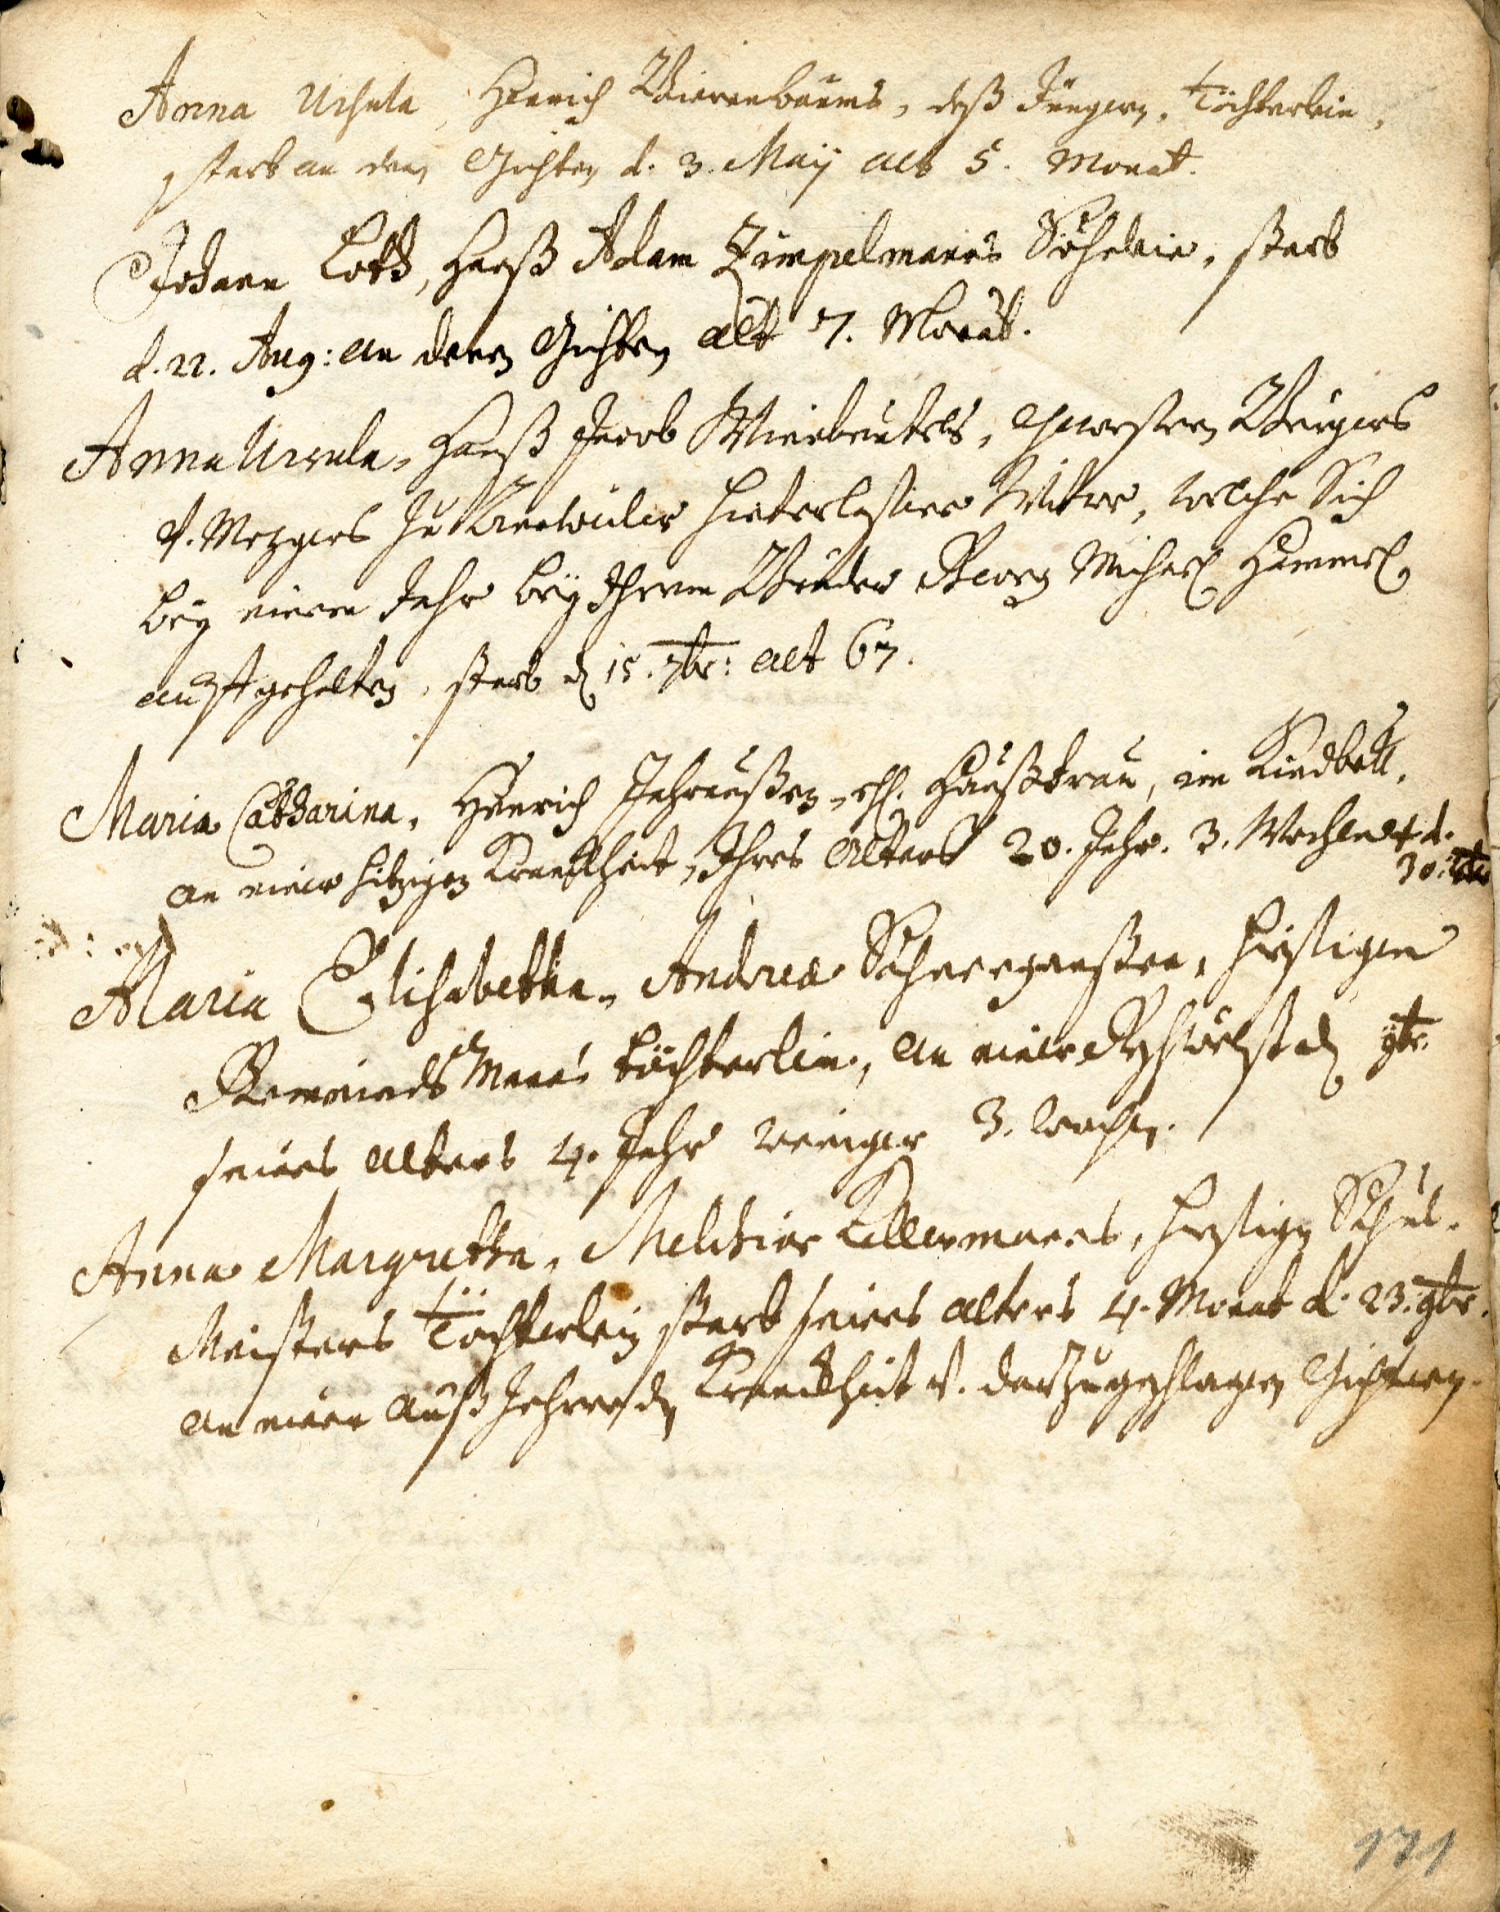 Anna Ursula, Henrich Bierenbaums, deß Jüngern, Töchterlein,
starb an den Gichten d. 3. Maÿ alt 5. Monat.
Johann Lotß, Hanß Adam Zimpelmanns Söhnlein, starb
d. 22. Aug: an denen Gichten alt 7. Monat.
Anna Ursula, Hanß Jacob, gewesenen Burgers
v. Mezgers zu hinterlaßene Witwe, welche Sich
beÿ einem Jahr beÿ Ihrem Bruder Georg Michael Hammel
auffgehalten, starb d 15. 7br: alt 67.
Maria Catharina, Henrich ehl. Haußfrau, im Kindbett,
an einer hitzigen Kranckheit, Ihres Alters 20. Jahr. 3. Wochen d.
30.
Maria Elisabetha, Andreæ Schneeganßen, hießigen
Gemeinds Manns töchterlein, an einer Geschwulst d 9br.
seines alters 4. Jahr weniger 3. wochen.
Anna Margretha, Melchior Kellermanns, hießigen Schul-
Meisters Töchterlein starb seines alters 4. Monat d. 23. 9br.
an einer außzehrenden Kranckheit v. darzugeschlagenen Gichtern.
171